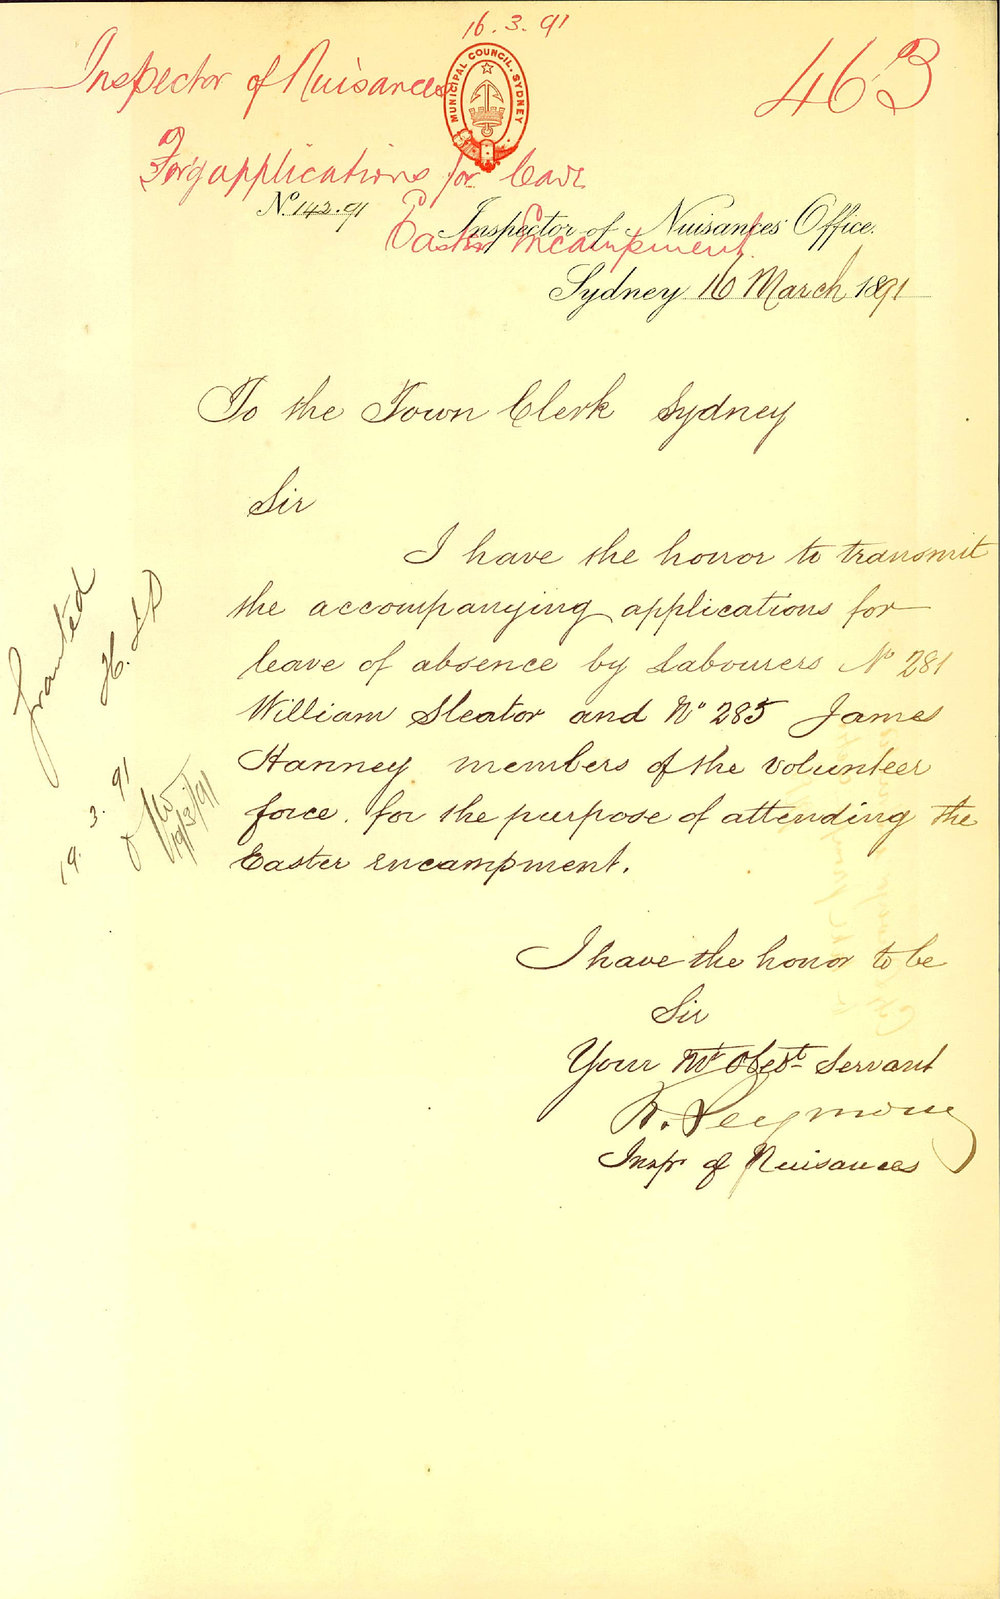 16.3.91
MUNICIPAL COUNCIL. SYDNEY
463
Inspector of Nuisances
applications for leave
Easter Encampment.
No. 142.91
Inspector of Nuisances Office.
Sydney 16 March 1891
To the Town Clerk Sydney
Sir
I have the honor to transmit
the accompanying applications for
leave of absence by Labourers No 281
William Sleator and No 285 James
Hanney members of the volunteer
force. for the purpose of attending the
Easter encampment.
I have the honor to be
Sir
Your Mt Obedt Servant
R. Seymour
Inspr of Nuisances
Granted
19.3.91
19/3/91